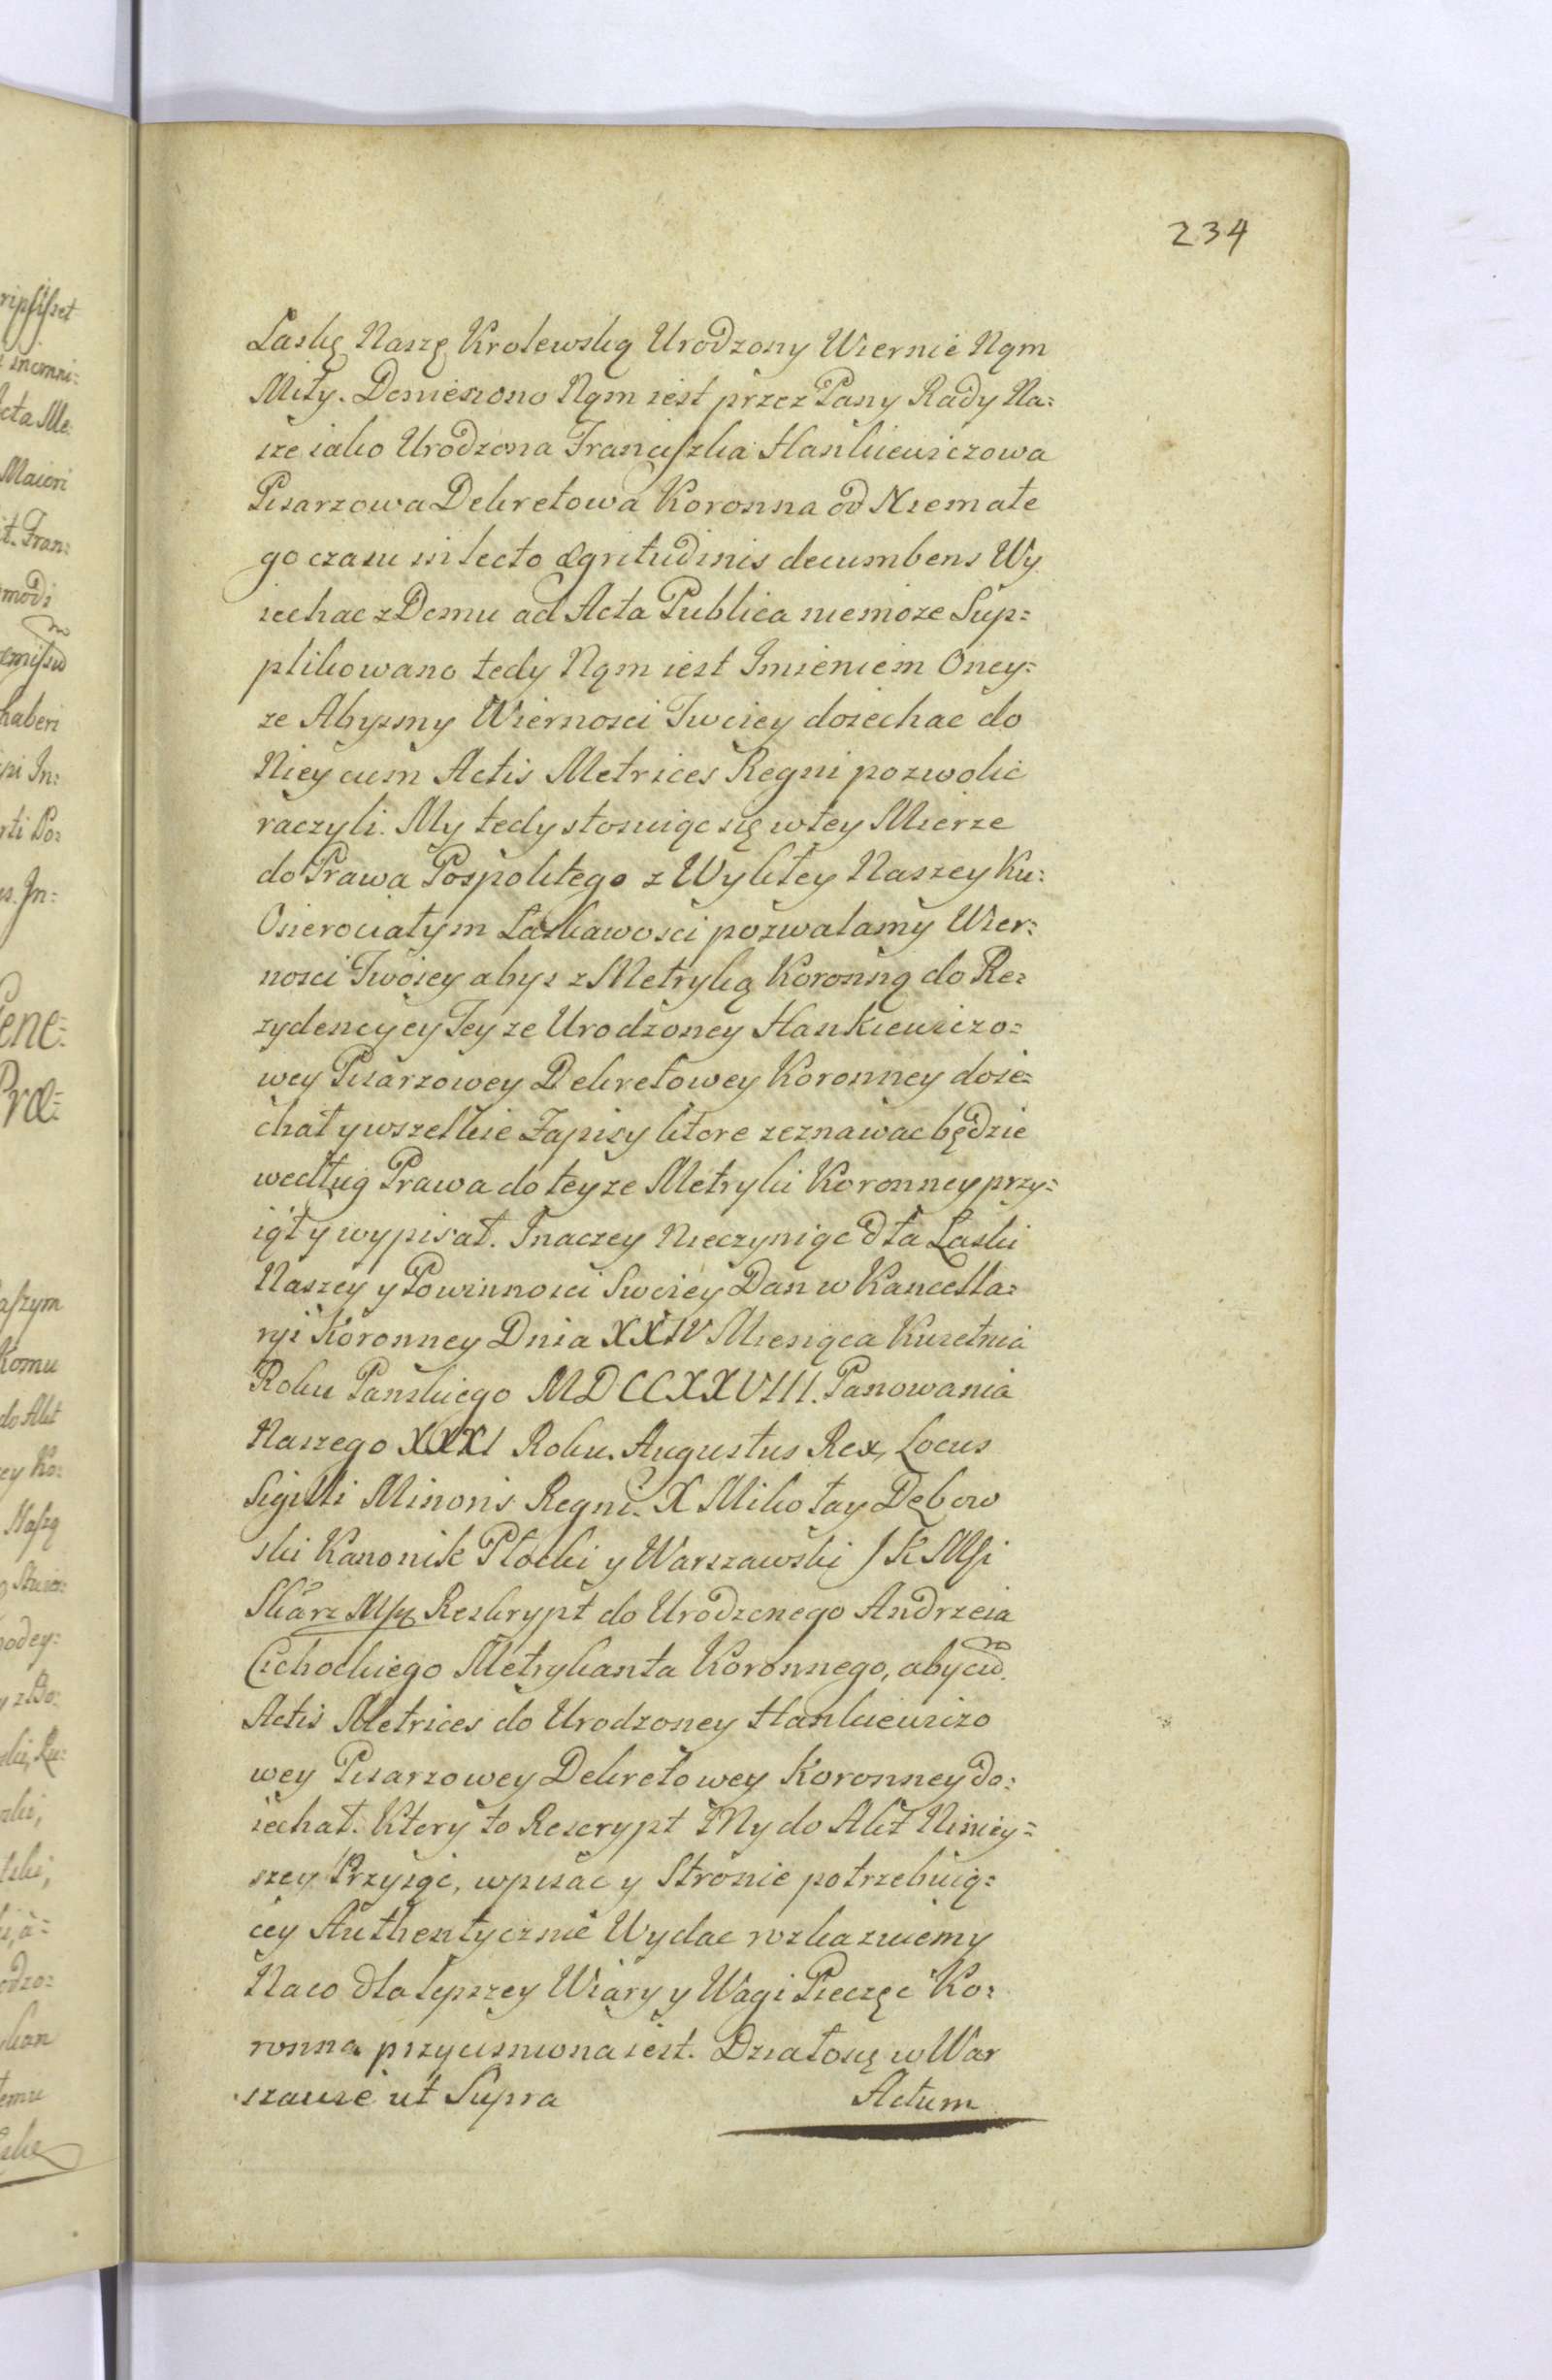 234
Laskę Naszę Krolewską Urodzony Wiernie Nąm
Miły. Doniesiono Nąm iest przez Pany Rady Na=
sze iako Urodzona Franciszka Hankiewiczowa
Pisarzowa Dekretowa Koronna od Niemałe
go czasu in lecto ægritudinis decumbens Wy
iechac z Domu ad Acta Publica niemoze Sup=
plikowano tedy Nąm iest Imieniem Oney=
ze Abysmy Wiernosci Twoiey doiechac do
Niey cum Actis Metrices Regni pozwolic
raczyli. My tedy stosuiąc się w tey Mierze
do Prawa Pospolitego z Wykłey Naszey Ku=
Osierociałym Łaskawosci pozwalamy Wier=
nosci Twoiey abys z Metryką Koronną do Re=
zydencyey Teyze Urodzoney Hankiewiczo=
wey Pisarzowey Dekretowey Koronney doie=
chał y wszelkie Zapisy ktore zeznawac będzie
według Prawa do teyze Metryki Koronney przy=
iął y wypisał. Inaczey Nieczyniąc dla Łaski
Naszey y Powinnosci Swoiey Dan w Kancella=
ryi Koronney Dnia XXIV Miesiąca Kwietnia
Roku Panskiego MDCCXXVIII. Panowania
Naszego XXXI Roku. Augustus Rex, Locus
Sigilli Minoris Regni. X Mikołay Dębow
ski Kanonik Płocki y Warszawski J K Msi
Skarz Mpp Reskrypt do Urodzonego Andrzeia
Cichockiego Metrykanta Koronnego, aby cum
Actis Metrices do Urodzoney Hankiewiczo
wey Pisarzowey Dekretowey Koronney do=
iechał. Ktory to Rescrypt My do Akt Niniey=
szey Przyiąc, wpisac y Stronie potrzebuią=
cey Authentycznie Wydac rozkazuiemy
Naco dla lepszey Wiary y Wagi Pieczęc Ko=
ronna przycisniona iest. Działosię w War
szawie ut Supra Actum